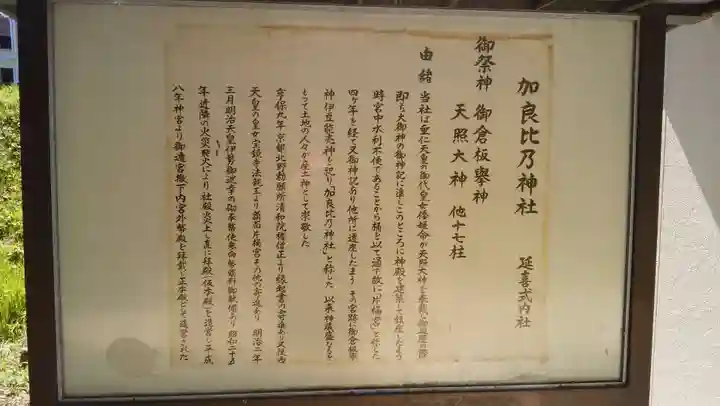 加良比乃神社 延喜式内社
御祭神 御倉板擧神
天照大神 他十七柱
由緒 当社は垂仁天皇の御代皇女倭姫命が天照大神を奉戴し御巡歴の際
即ち大御神の御神記に準じこのところに神殿を建築して鎮座したまう
時宮中水利不便であることから樋を以て通ず故に「片樋宮」と称した
四ヶ年を経て又御神記あり他所に遷座したまう その宮跡に御倉板擧
神伊豆能売神を祀り「加良比乃神社」と称した 以来神威盛なるを
もって土地の人々が産土神として崇敬した
享保九年京都北野勅願所清和院権僧正より縁起書の寄進あり又後西
天皇の皇女宝鏡寺法親王より翁面片樋宮その他の寄進あり 明治二年
三月明治天皇伊勢御巡幸の砌奉幣使来向幣饌料御献備あり 昭和二十五
年近隣の火災飛火により社殿炎上し直に拝殿(仮本殿)を造営し平成
八年神宮より御遷宮撤下内宮外幣殿を拝戴し正本殿として造営された